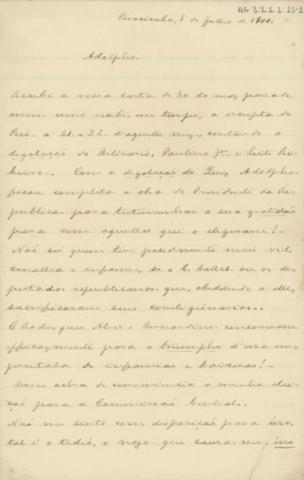 AG 3.1.1.1.15-1
Piracicaba, 5 de Julho de 1900.
Adolpho.
Recebi a vossa carta de 30 do mez passado,
assim como recebi, em tempo, a escripta do
Rio a 21 e 22 d'aquelle mez, contando a
degolação do Belisario, Paulino Jr. e Leite Ri-
beiro. Com a degolação do Luiz Adolpho
ficou completa a obra do Presidente da Re-
publica para testemunhar a sua gratidão
para com aquelles que o elegeram!
Não sei quem tem procedimento mais vil,
canalha e infame, se o C. Salles ou os de-
putados republicanos que, obedendo a elle,
sacrificaram seus correligionarios.
O Rodrigues Alves e Bernardino concorreram
efficazmente para o triumpho d'essa em-
preitada de infamias e baixezas!
acho de conveniencia a minha elei-
ção para a Commissão Central.
Não me sinto com disposição para isso,
tal é o tedio, o nojo que causa-me, isso